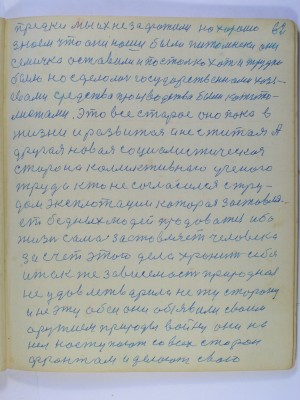 предки мы их не захотели но хорошо 62
знаем что они
семичка оставили и постолко хотя трудно
было но сделом государственным хозя-
евами средства производства были капита-
листами. Это все старое оно пока в
жизни и развитая и не считая А
другая новая социалистическая
сторона коллективного ученого
труда кто не согласился с тру-
дом эксплотации которая заставля-
ет бедных людей продоватся ибо
жизнь сама заставляет человека
за счет этого дела хранит себя
и так же зависемость природная
не удовлетварила не ту сторону
и не эту обои они обявили своим
оружием природы войну они на
неё наступают со всех сторон
фронтам и делают свою